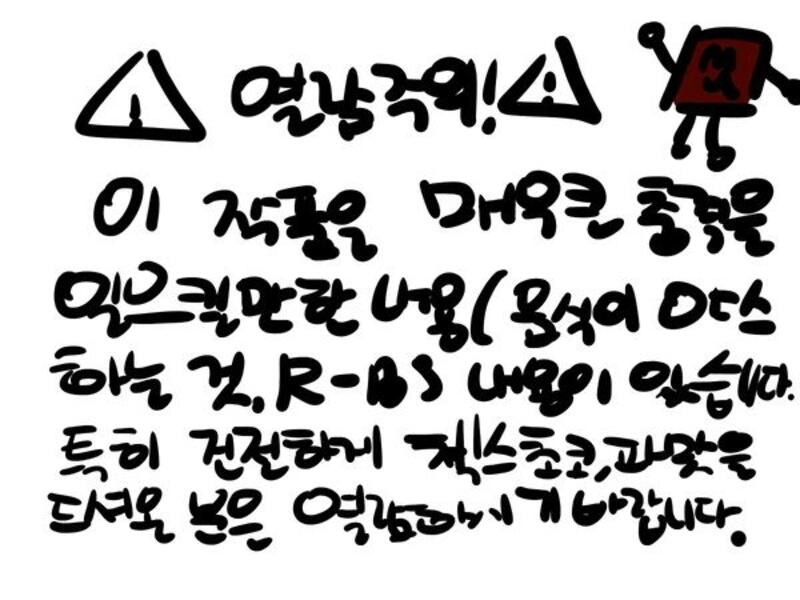 ⚠ 열람주의! ⚠
이 작품을 매우큰 충격을
일으킬만한 내용(음식이 야스
하는 것, R-18S 내용)이 있습니다.
특히 건전하게 첵스초코,파맛을
드셔온 분은 바랍니다.